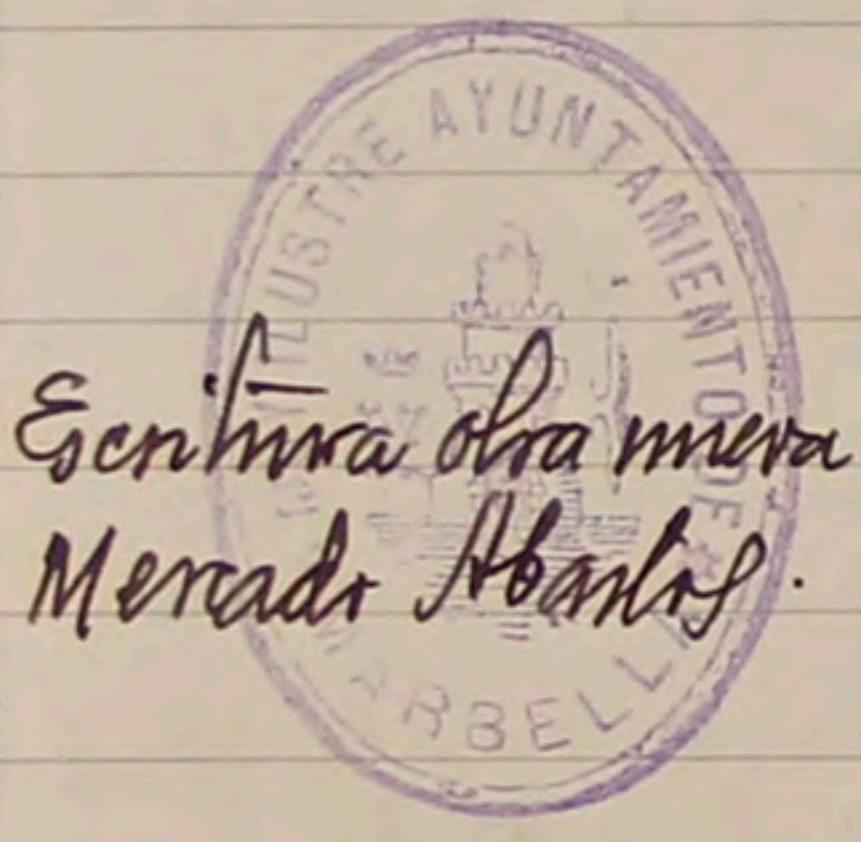 ILUSTRE AYUNTAMIENTO DE
MARBELLA
Escritura obra nueva
Mercado Abastos.